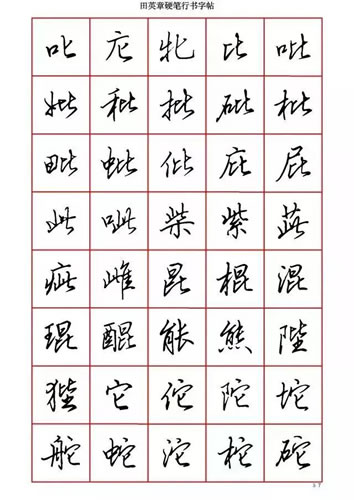 田英章硬笔行书字帖
叱 庀 牝 比 吡
妣 秕 批 砒 枇
毗 蚍 仳 庇 屁
此 呲 柴 紫
疵 雌 昆 棍 混
琨 醌 能 熊 陛
狴 它 佗 陀 坨
舵 蛇 沱 柁 砣